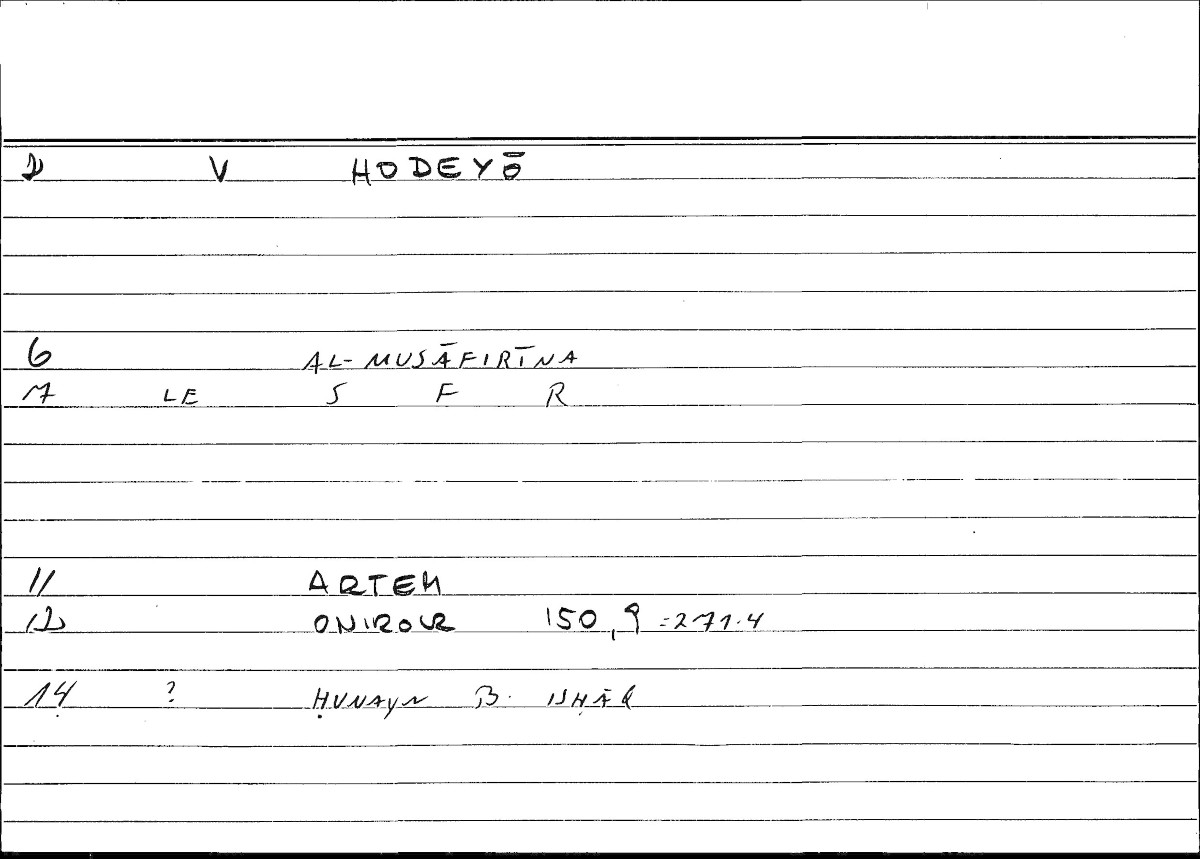 D V HODEYŌ
6 AL-MUSĀFIRĪNA
7 LE S F R
11 ARTEM
12 ONIROCR 150,9 =271.4
14 ? ḤUNAYN B. ISḤĀQ